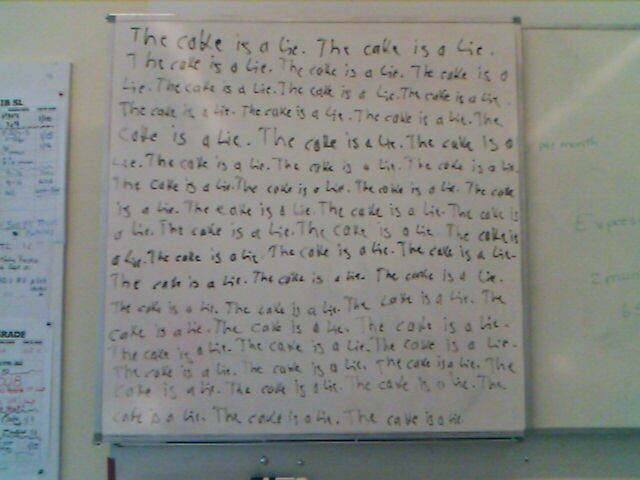 The cake is a Lie. The cake is a Lie.
The cake is a Lie. The cake is a Lie. The cake is a
Lie. The cake is a Lie. The cake is a Lie. The cake is a Lie.
The cake is a Lie. The cake is a Lie. The cake is a Lie. The
cake is a Lie. The cake is a Lie. The cake is a
Lie. The cake is a Lie. The cake is a Lie. The cake is a Lie.
The cake is a Lie. The cake is a Lie. The cake is a Lie. The cake
is a Lie. The cake is a Lie. The cake is a Lie. The cake is
a Lie. The cake is a Lie. The cake is a Lie. The cake is
a Lie. The cake is a Lie. The cake is a Lie. The cake is a Lie.
The cake is a Lie. The cake is a Lie. The cake is a Lie.
The cake is a Lie. The cake is a Lie. The cake is a Lie. The
cake is a Lie. The cake is a Lie. The cake is a Lie.
The cake is a Lie. The cake is a Lie. The cake is a Lie.
The cake is a Lie. The cake is a Lie. The cake is a Lie. The
cake is a Lie. The cake is a Lie. The cake is a Lie. The
cake is a Lie. The cake is a Lie. The cake is a Lie
IB SL
GRADE
per month